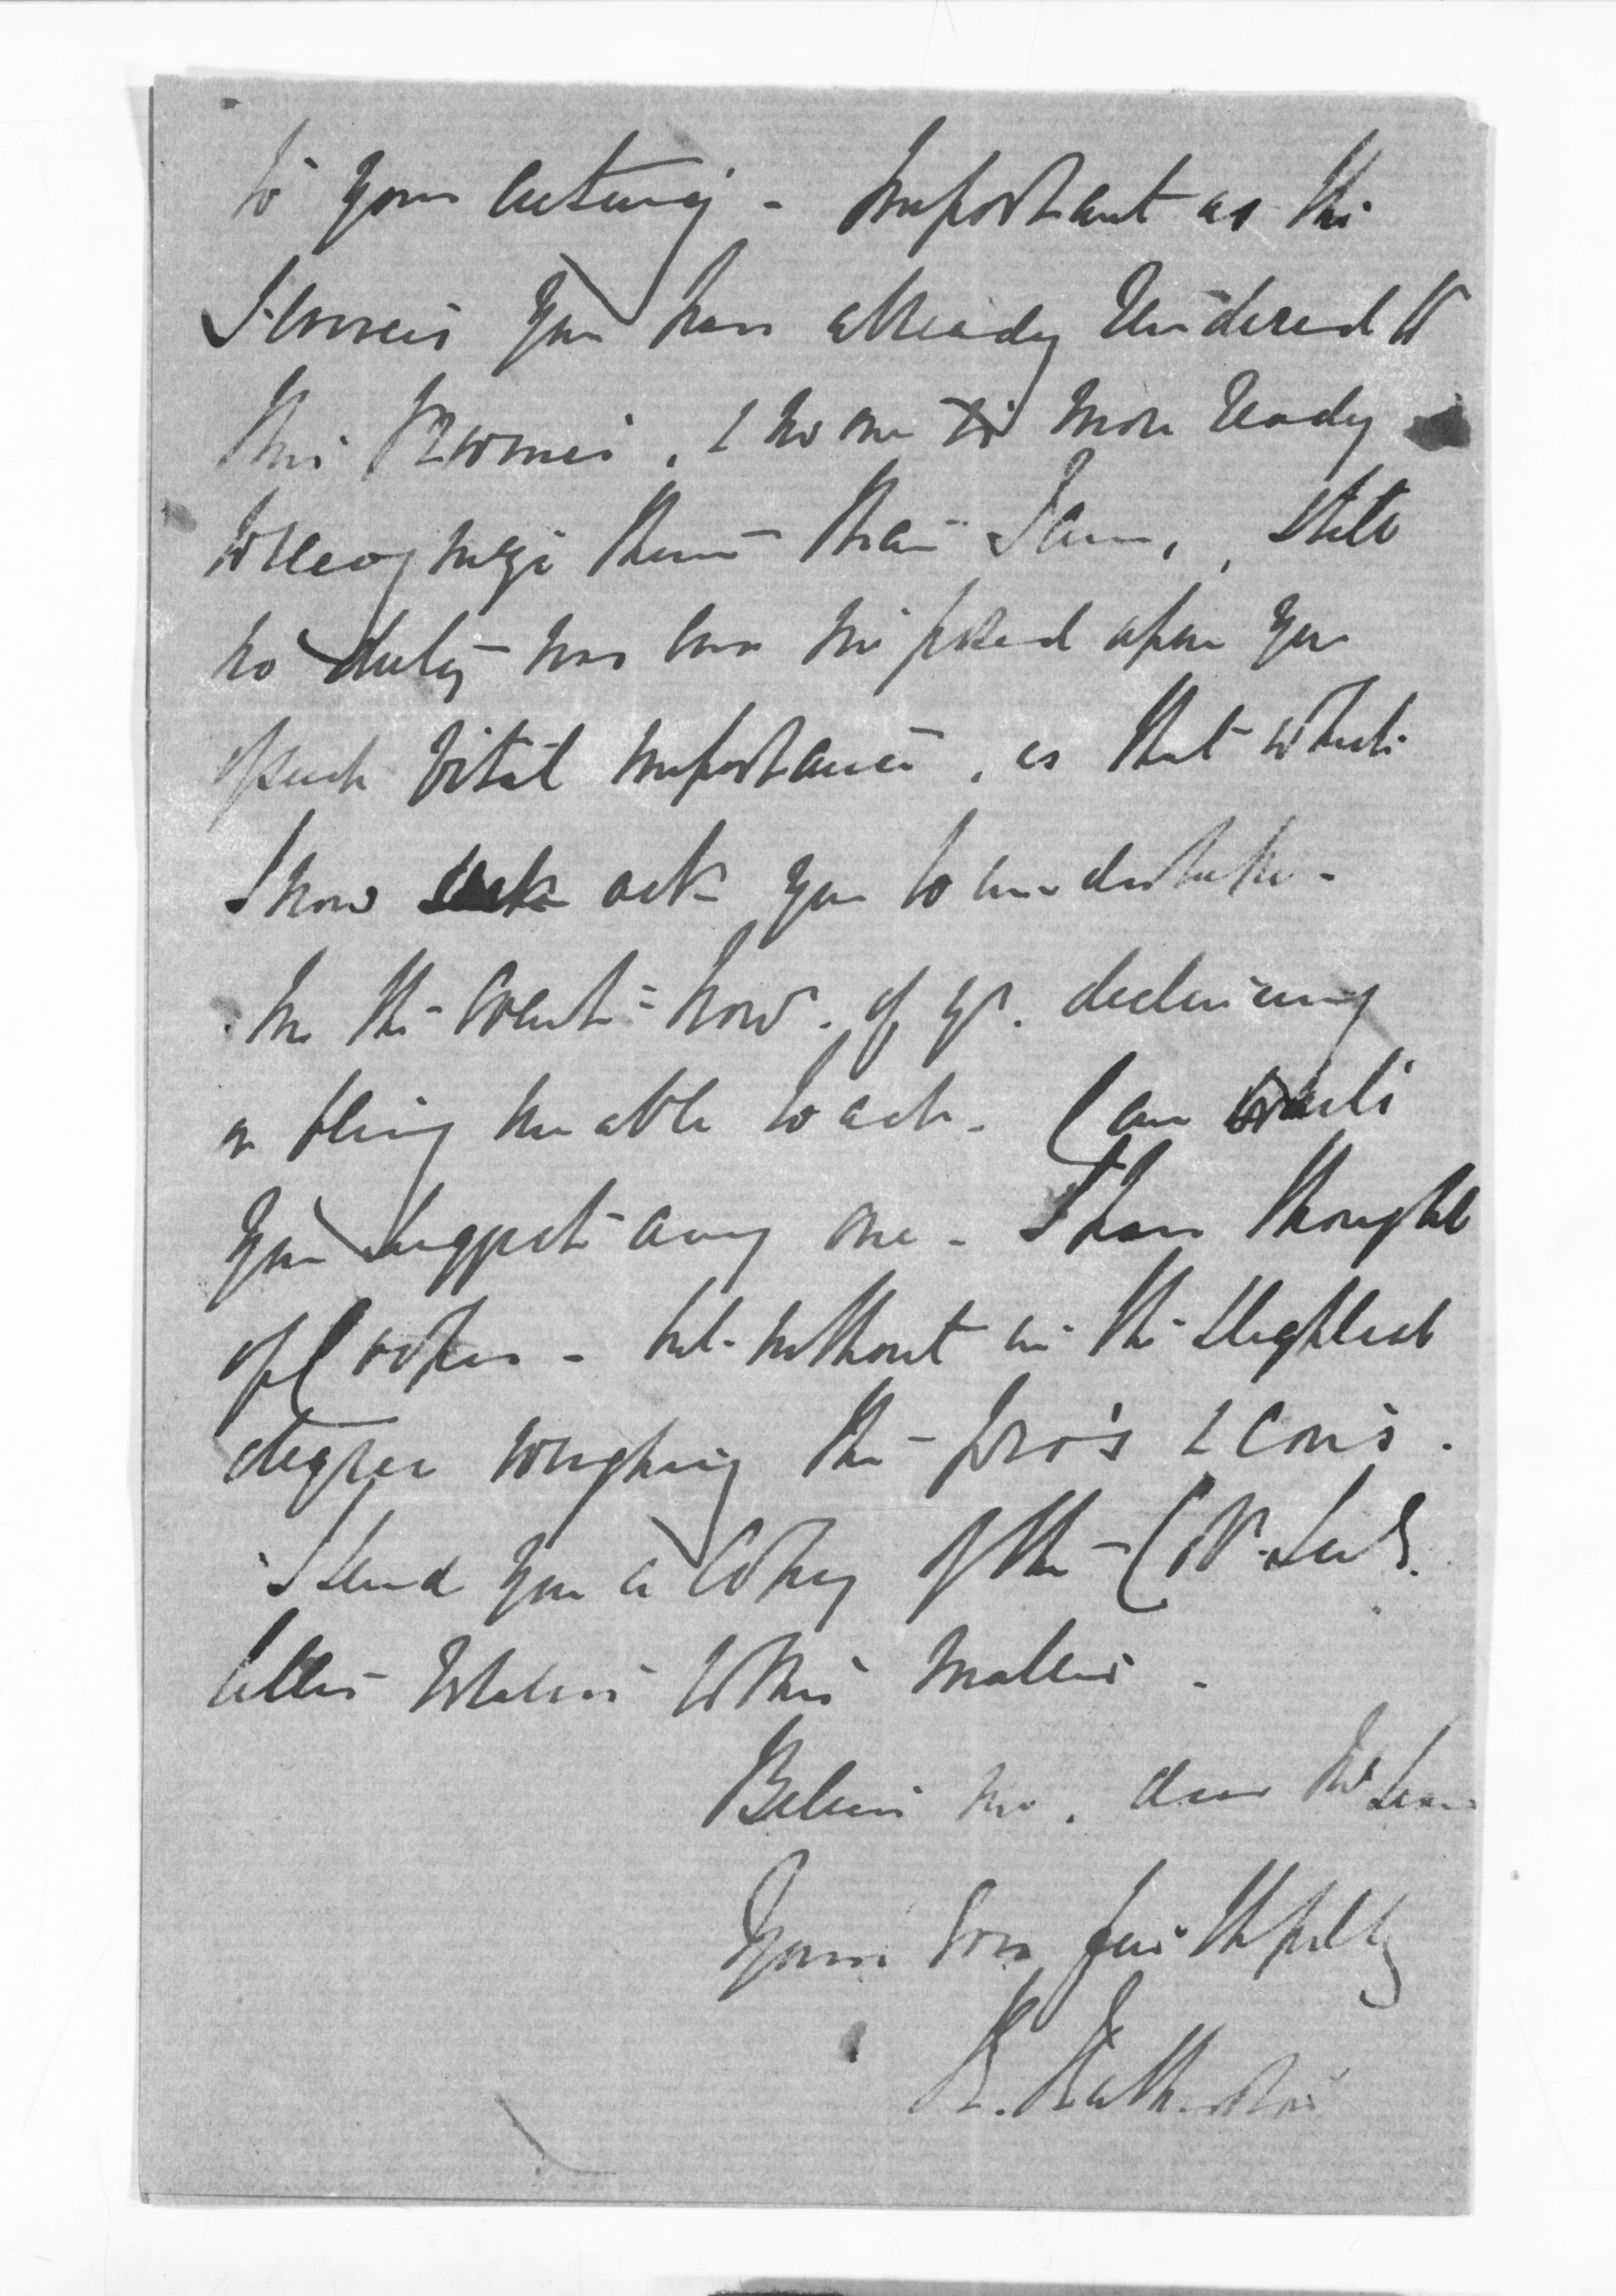 to your acting - Important as the
Services you have already rendered to
this Province, & no one is more ready
to recognize them than I am, still
no duty has been imposed upon you
of such vital importance, as that which
I now ask you to undertake -
In the event - how. of yr. declining
or being unable to act - Can
you suggest any one - I have thought
of - but without in the slightest
degree weighing the pro's & con's.
I send you a copy of the Col. Sec's.
letter relative to this matter -
Believe me, dear McLean
Yours very faithfully